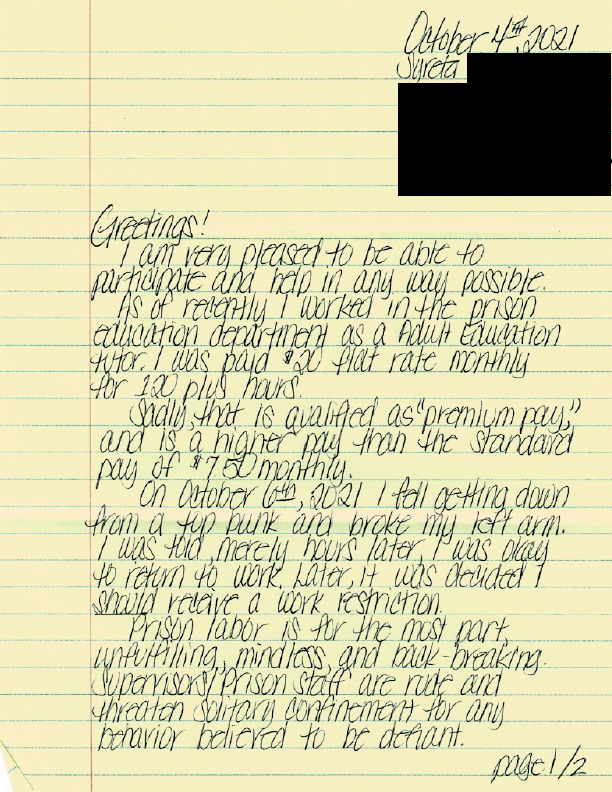 October 4th, 2021
Syreta
Greetings!
I am very pleased to be able to
participate and help in any way possible.
As of recently I worked in the prison
education department as a Adult Education
tutor. I was paid $20 flat rate monthly
for 120 plus hours.
Sadly, that is qualified as "premium pay,"
and is a higher pay than the standard
pay of $7.50 monthly.
On October 6th, 2021 I fell getting down
from a top bunk and broke my left arm.
I was told, merely hours later, I was okay
to return to work. Later, it was decided I
should receive a work restriction.
Prison labor is for the most part,
unfulfilling, mindless, and back-breaking.
Supervisors/Prison staff are rude and
threaten solitary confinement for any
behavior believed to be defiant.
page 1/2